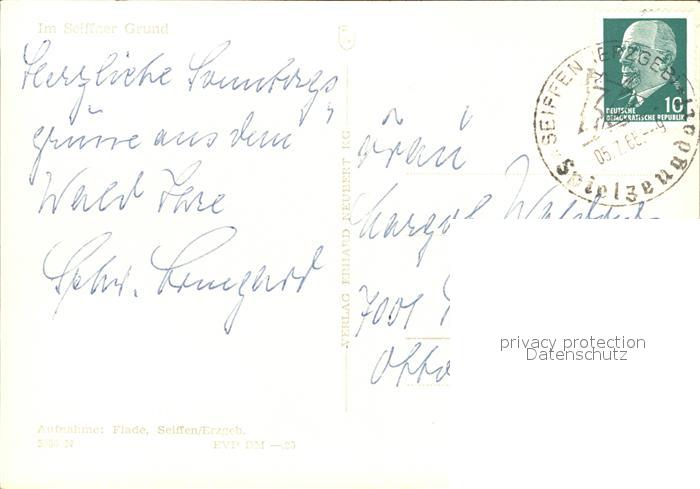 Im Seiffner Grund
Herzliche Sonntags
grüsse aus dem
Wald Ihre
Schw. Irmgard
Aufnahme: Flade, Seiffen/Erzgeb.
EVP DM —,25
VERLAG ERHARD NEUBERT KG
DEUTSCHE
DEMOKRATISCHE REPUBLIK
10
SEIFFEN (ERZGEB)
Spielzeug
Margot
7001
Otto
privacy protection
Datenschutz